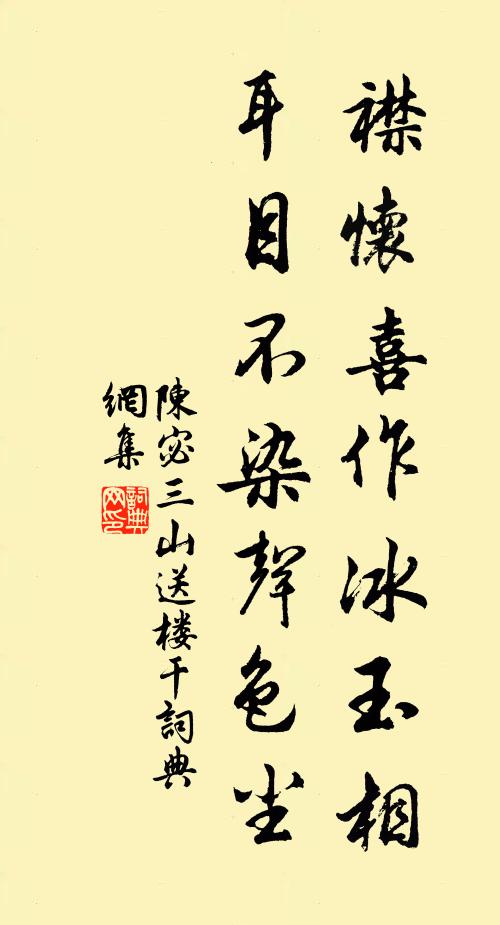 襟懷喜作冰玉相
耳目不染聲色尘
陳宓三山送楼干詞典
網集
詞典網印